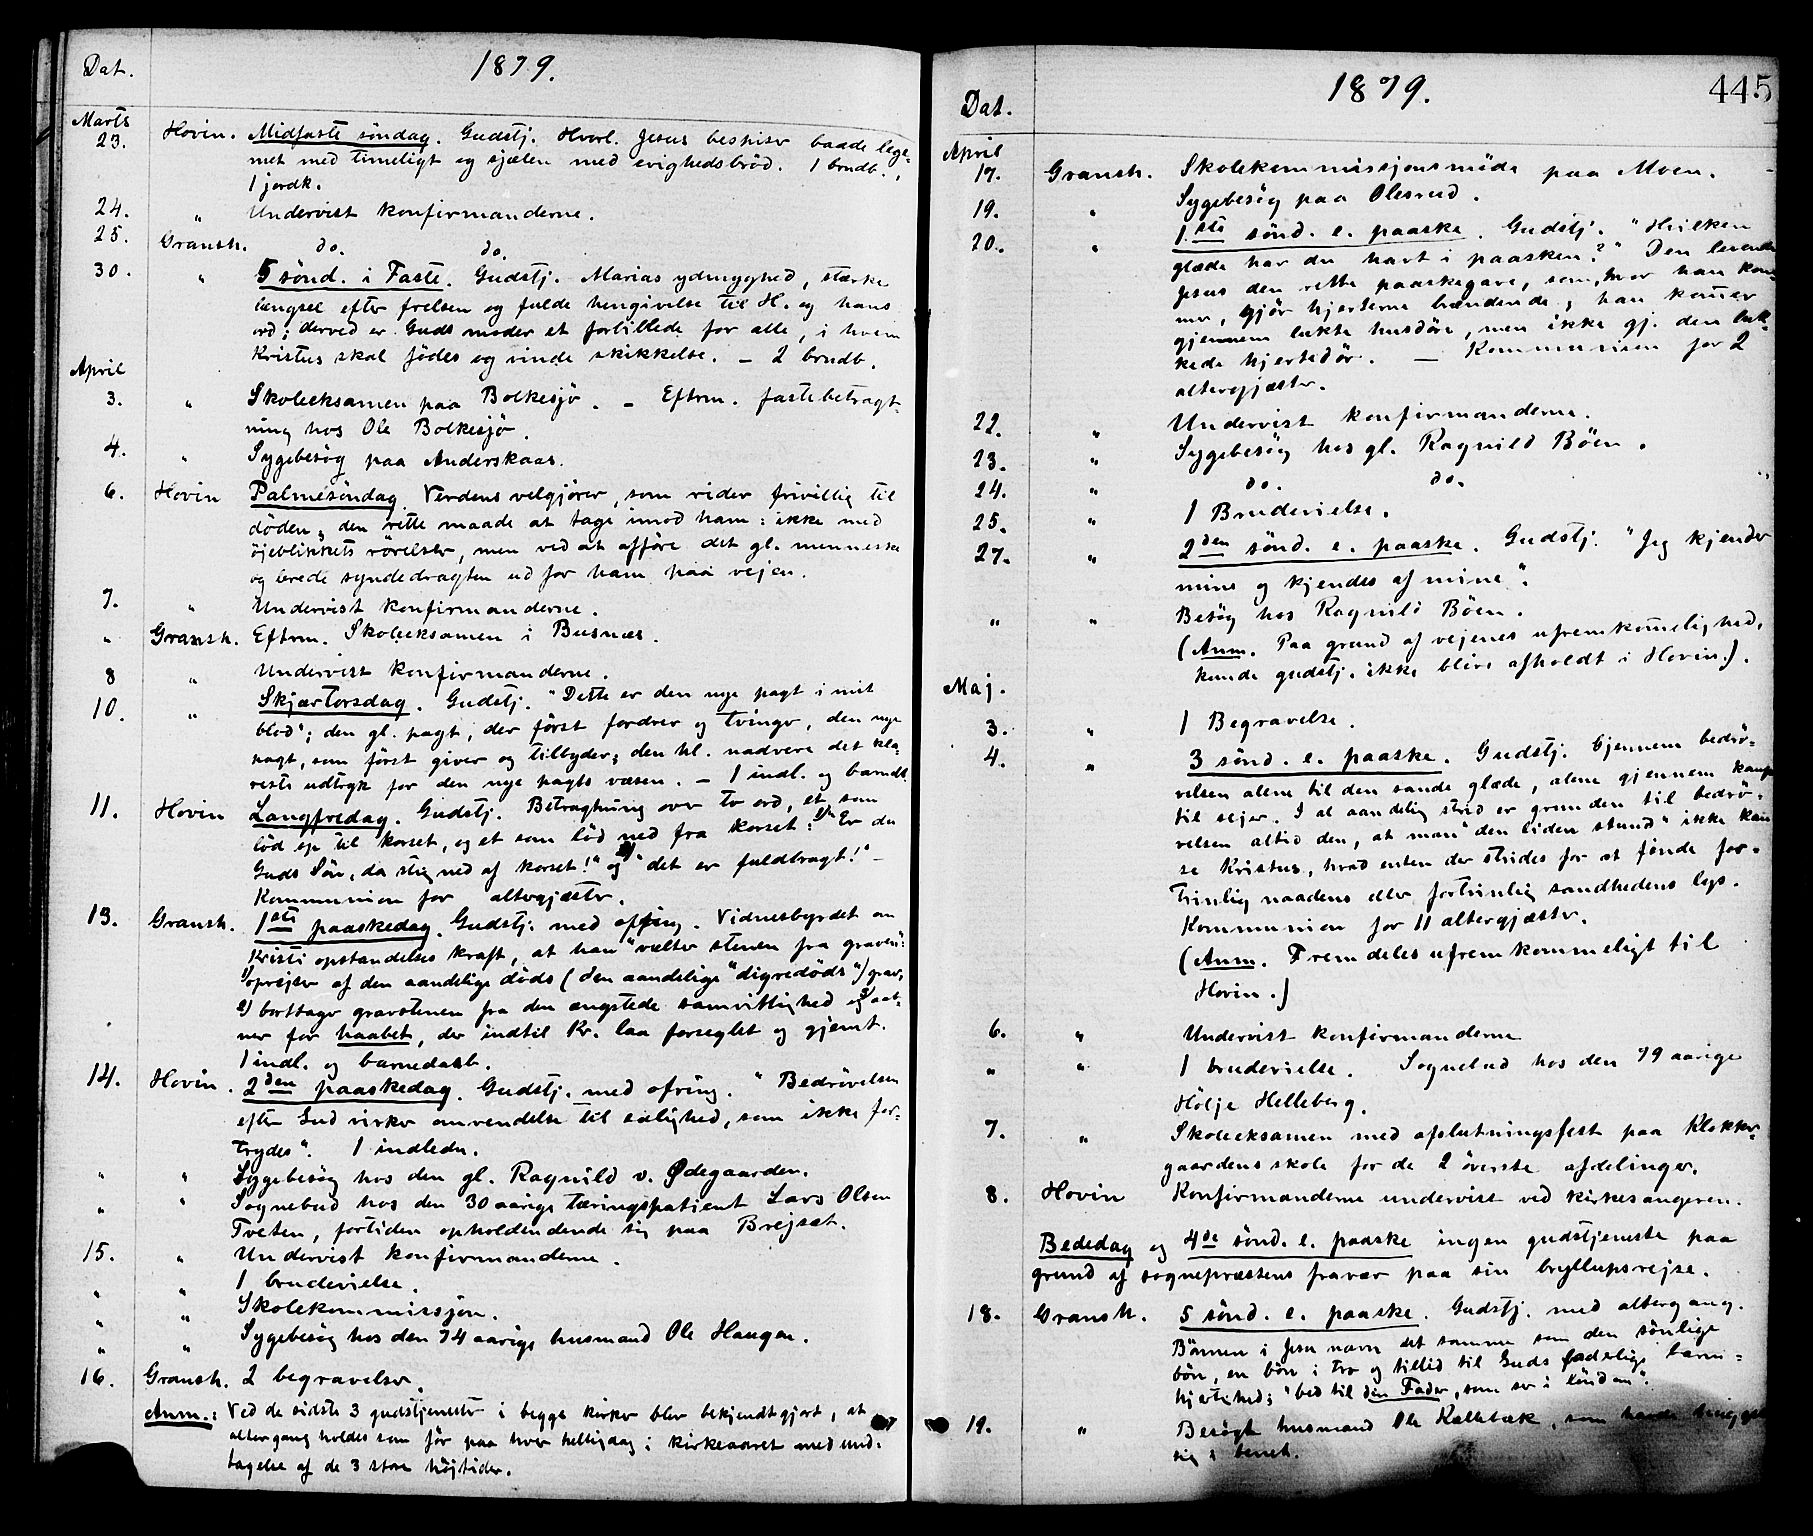 Dat. 1879.
Marts
23. Hovin. Midfaste søndag. Gudstj. Hvorl. Jesus bespiser baade lege-
met med timeligt og sjælen med evighedsbrød. 1 brudb.,
1 jordk.
24. " Undervist konfirmanderne.
25. Gransh. do. do.
30. " 5 sønd. i Faste. Gudstj. Marias ydmyghed, stærke
længsel efter frelsen og fulde hengivelse til H. og hans
ord; derved er Guds moder et forbillede for alle, i hvem
Kristus skal fødes og vinde skikkelse. – 2 brudb.
April
3. " Skoleeksamen paa Bolkesjø. – Eftrm. fastebetragt-
ning hos Ole Bolkesjø.
4. " Sygebesøg paa Anderskaas.
6. Hovin Palmesøndag. Verdens velgjører, som rider frivillig til
døden; den rette maade at tage imod ham: ikke med
øjeblikkets rørelser, men ved at afføre det gl. menneske
og brede syndedragten ud for ham paa vejen.
7. " Undervist konfirmanderne.
" Gransh. Eftrm. Skoleeksamen i Busnæs.
8 " Undervist konfirmanderne.
10. " Skjærtorsdag. Gudstj. "Dette er den nye pagt i mit
blod"; den gl. pagt, der først fordrer og tvinger, den nye
pagt, som først giver og tilbyder; den hl. nadvere det kla-
reste udtryk for den nye pagts væsen. – 1 indl. og barndb.
11. Hovin Langfredag. Gudstj. Betragtning over to ord, et som
lød op til korset, og et som lød ned fra korset: 1) "Er du
Guds Søn, da stig ned af korset!" og 2) "det er fuldbragt!" –
Kommunion for altergjæster.
13. Gransh. 1ste paaskedag. Gudstj. med offring. Vidnesbyrdet om
Kristi opstandelses kraft, at han "vælter stenen fra graven":
1) oprejser af den aandelige døds (den aandelige "digredøds") grav,
2) borttager gravstenen fra den ængstede samvittighed og 3) aab-
ner for haabet, der indtil Kr. laa forseglet og gjemt.
1 indl. og barnedaab.
14. Hovin. 2den paaskedag. Gudstj. med ofring. "Bedrøvelsen
efter Gud virker omvendelse til salighed, som ikke for-
trydes". 1 indledn.
" " Sygebesøg hos den gl. Ragnild v. Ødegaarden.
" " Sognebud hos den 30 aarige tæringspatient Lars Olsen
Tveten, fortiden opholdendende sig paa Brejset.
15. " Undervist konfirmanderne.
" " 1 brudevielse.
" " Skolekommissjon.
" " Sygebesøg hos den 74 aarige husmand Ole Haugan.
16. Gransh. 2 begravelser.
Anm.: Ved de sidste 3 gudstjenester i begge kirker blev bekjendtgjort, at
altergang holdes som før paa hver helligdag i kirkeaaret med und-
tagelse af de 3 store højtider.
Dat. 1879. 445
April
17. Gransh. Skolekommissjonsmøde paa Moen.
19. " Sygebesøg paa Olesrud.
20. " 1.ste sønd. e. paaske. Gudstj. "Hvilken
glæde har du havt i paasken?" Den levende
Jesus den rette paaskegave, som, hvor han kom-
mer, gjør hjerterne brændende; han kommer
gjennem lukte husdøre, men ikke gj. den luk-
kede hjertedør. – Kommunion for 2
altergjæster.
22. " Undervist konfirmanderne.
23. " Sygebesøg hos gl. Ragnild Bøen.
24. " do. do.
25. " 1 Brudevielse.
27. " 2den sønd. e. paaske. Gudstj. "Jeg kjender
mine og kjendes af mine".
" " Besøg hos Ragnild Bøen.
(Anm. Paa grund af vejenes ufremkommelighed,
kunde gudstj. ikke blive afholdt i Hovin.).
Maj.
3. " 1 Begravelse.
4. " 3 sønd. e. paaske. Gudstj. Gjennem bedrø-
velsen alene til den sande glæde, alene gjennem kamp
til sejer. I al aandelig strid er grunden til bedrø-
velsen altid den, at man "den liden stund" ikke kan
se Kristus, hvad enten der strides for at finde for-
trinlig naadens eller fortrinlig sandhedens lys.
Kommunion for 11 altergjæster.
(Anm. Fremdeles ufremkommeligt til
Hovin.)
6. " Undervist konfirmanderne
" " 1 brudevielse. Sognebud hos den 79 aarige
Hølje Helleberg.
7. " Skoleeksamen med afslutningsfest paa Klokker-
gaardens skole for de 2 øverste afdelinger.
8. Hovin Konfirmanderne undervist ved kirkesangeren.
Bededag og 4de sønd. e. paaske ingen gudstjeneste paa
grund af sognepræstens fravær paa sin bryllupsrejse.
18. Gransh. 5 sønd. e. paaske. Gudstj. med altergang.
Bønnen i Jesu navn det samme som den sønlige
bøn, en bøn i tro og tillid til Guds faderlige barm-
hjertighed; "bed til din Fader, som ser i løndom".
19. " Besøgt husmand Ole Kallebæk, som havde
sig i benet.